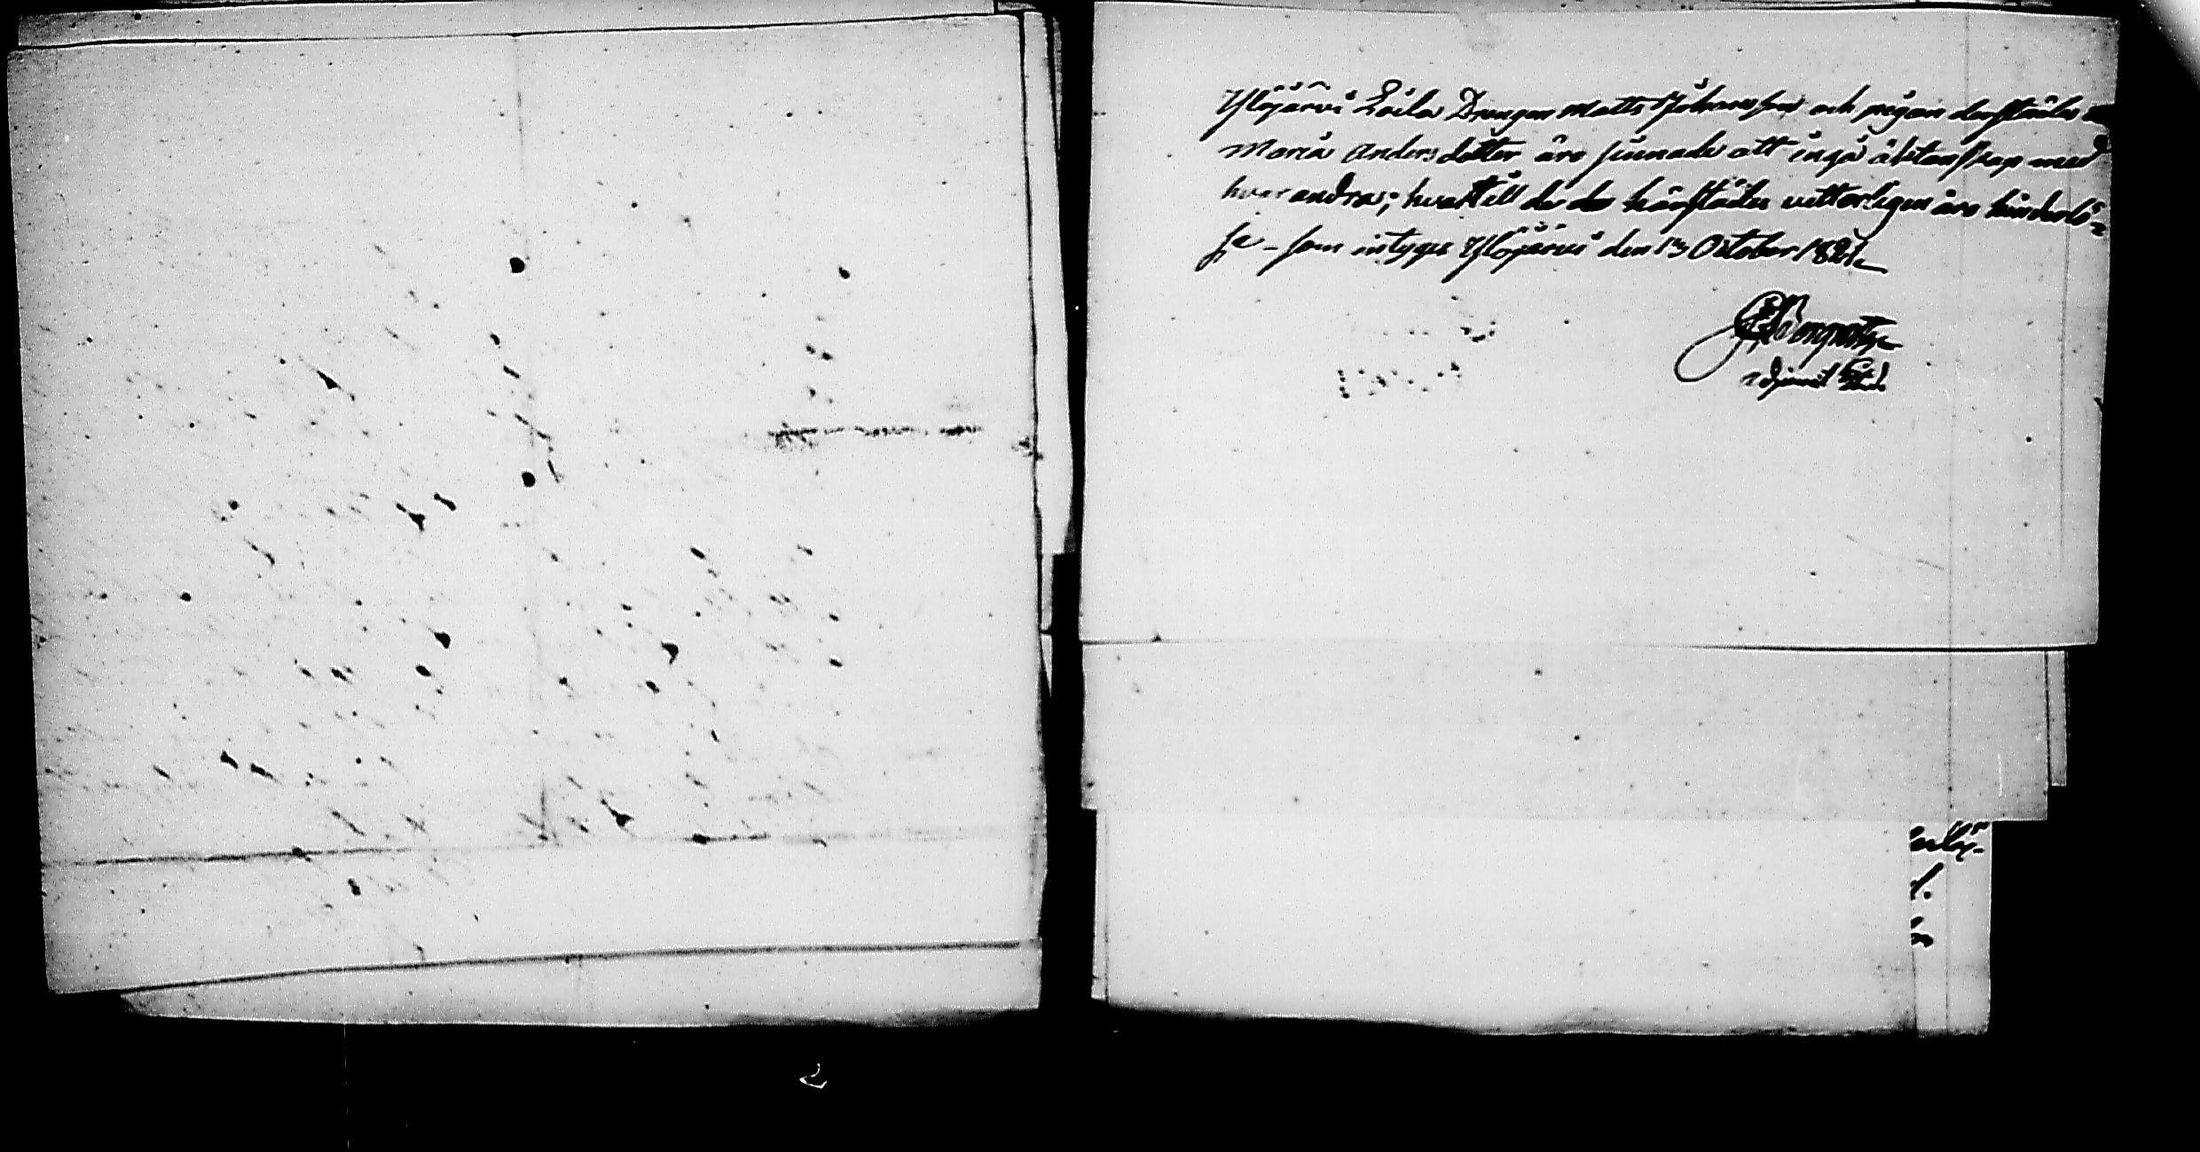 Ylöjärvi Soila Drengen Matts Johansson och pigan derstädes
Maria Andersdotter äro sinnade att ingå äktenskap med
hvarandra; hvartill de härstädes vetterligen äro hinderlö-
se - som intygas Ylöjärvi den 13 October 1821
adjunct
2